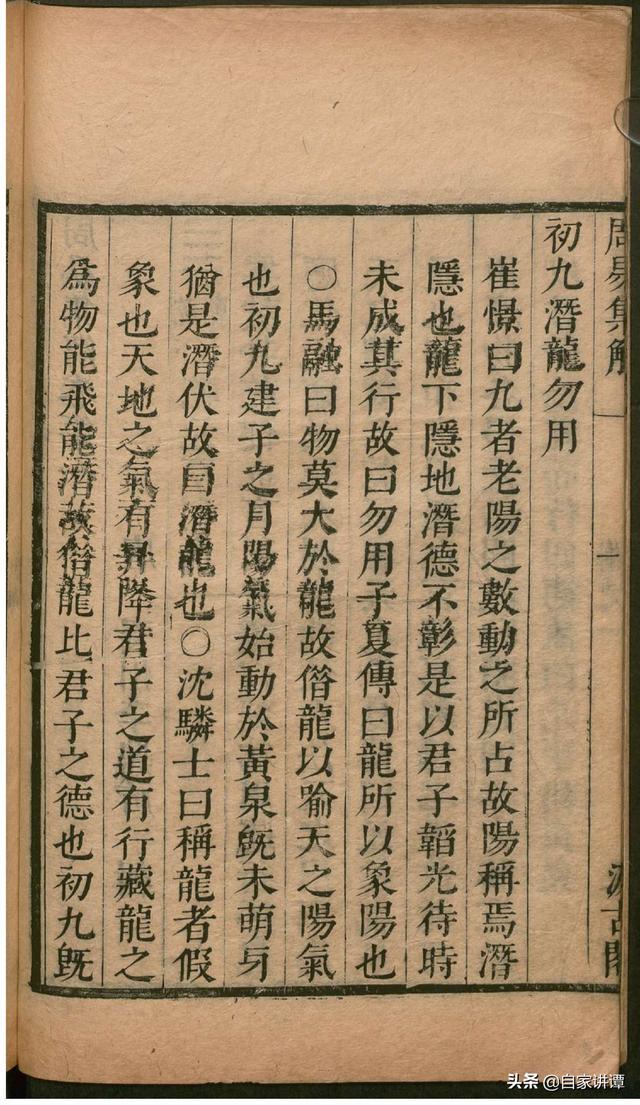 周易集解
一
汲古閣
初九潛龍勿用
崔憬曰九者老陽之數動之所占故陽稱焉潛
隱也龍下隱地潛德不彰是以君子韜光待時
未成其行故曰勿用子夏傳曰龍所以象陽也
〇馬融曰物莫大於龍故借龍以喻天之陽氣
也初九建子之月陽氣始動於黃泉旣未萌身
猶是潛伏故曰潛龍也〇沈驎士曰稱龍者假
象也天地之氣有昇降君子之道有行藏龍之
爲物能飛能潛故借龍比君子之德也初九旣
头条 @自家讲谭